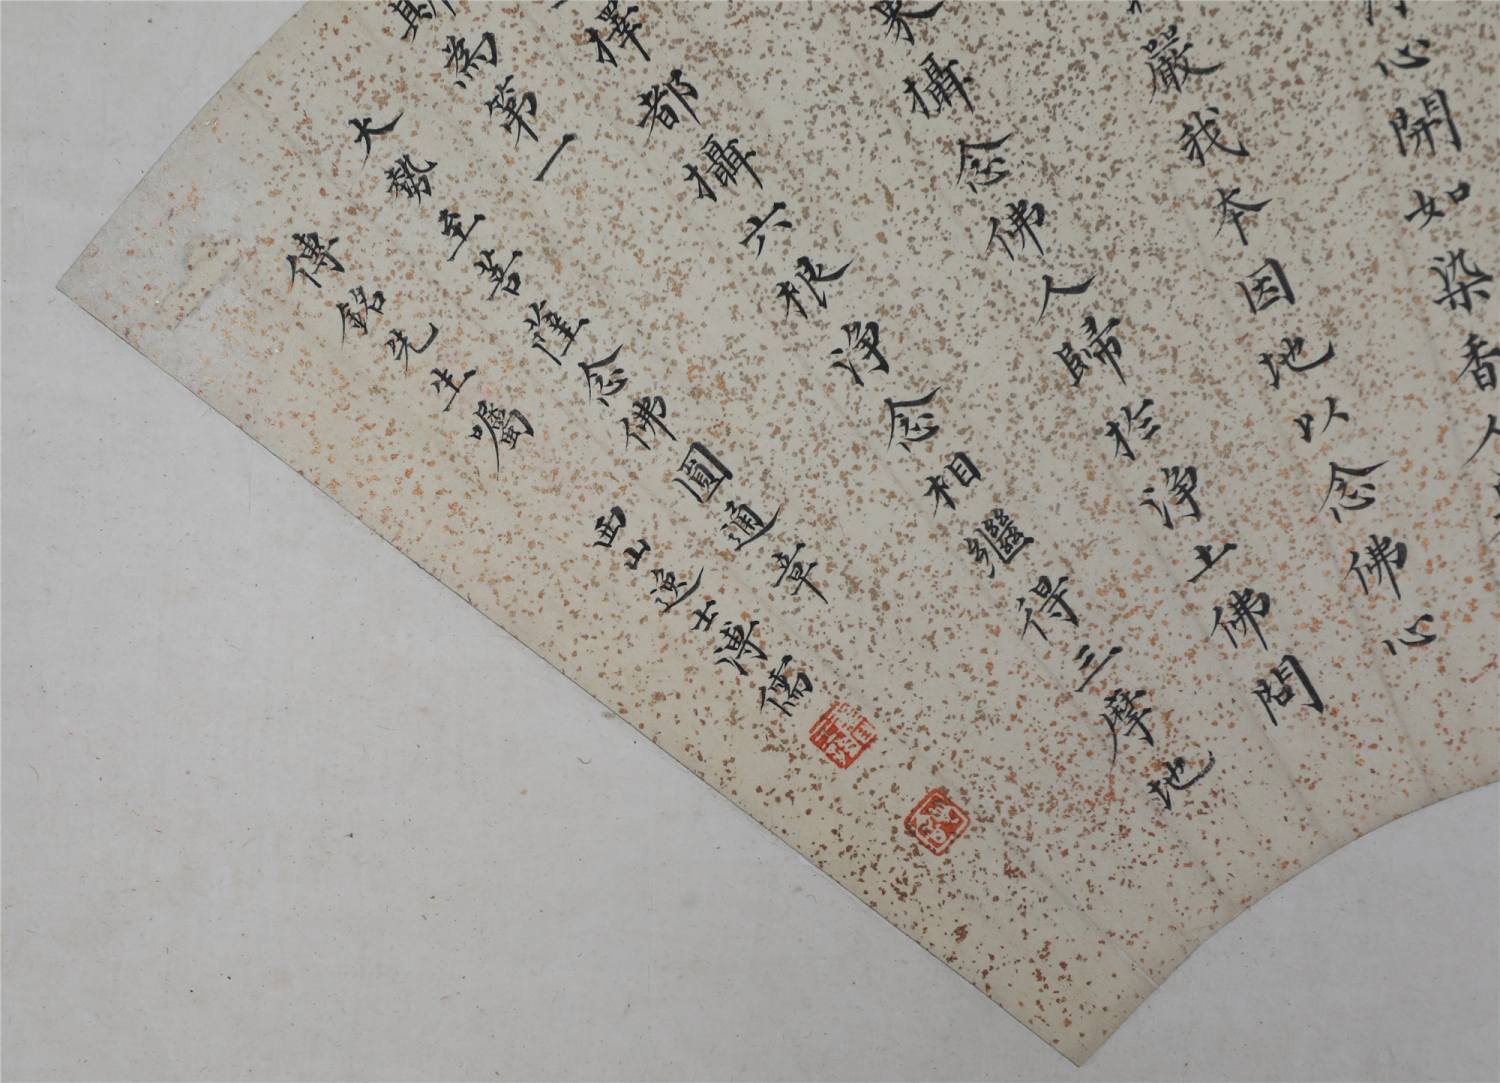 得心開如染香人
莊嚴我本因地以念佛心
界攝念佛人歸扵淨土佛問
擇都攝六根淨念相繼得三摩地
斯為第一
大勢至菩薩念佛圓通章
傳銘先生囑 西山逸士溥儒